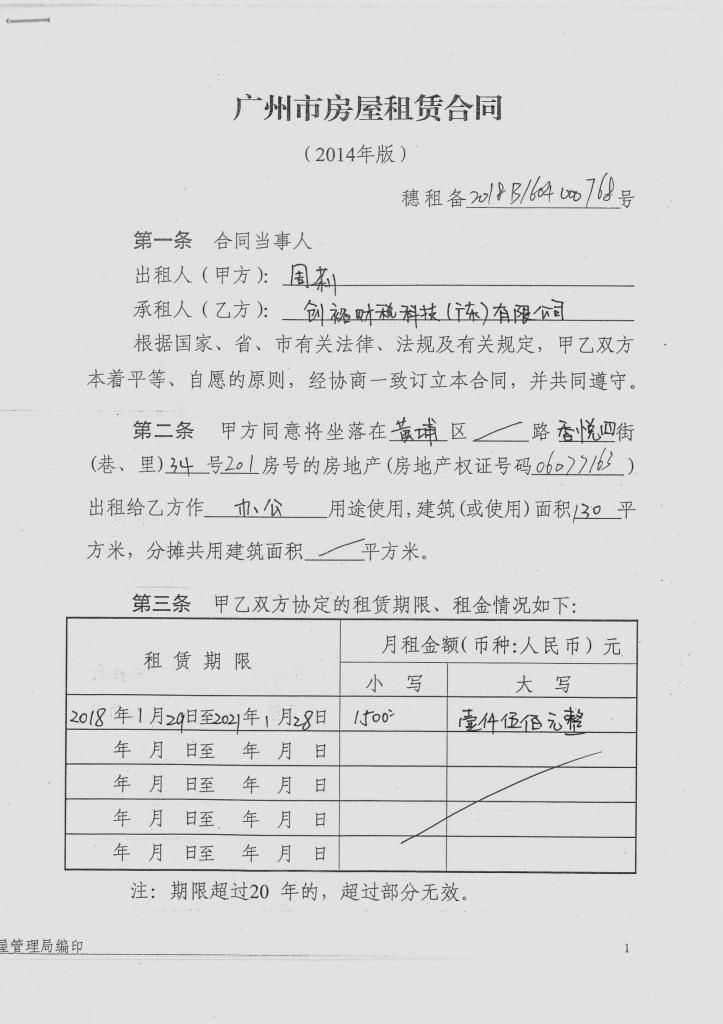 广州市房屋租赁合同
（2014年版）
穗租备2018B1604000768号
第一条 合同当事人
出租人（甲方）：周莉
承租人（乙方）：创裕财税科技（广东）有限公司
根据国家、省、市有关法律、法规及有关规定，甲乙双方
本着平等、自愿的原则，经协商一致订立本合同，并共同遵守。
第二条 甲方同意将坐落在黄埔区／路香悦四街
（巷、里）34号201房号的房地产（房地产权证号码06077163）
出租给乙方作办公用途使用，建筑（或使用）面积130平
方米，分摊共用建筑面积／平方米。
第三条 甲乙双方协定的租赁期限、租金情况如下：
租赁期限 月租金额（币种：人民币）元
小写 大写
2018年1月29日至2021年1月28日 1500 壹仟伍佰元整
年 月 日至 年 月 日
年 月 日至 年 月 日
年 月 日至 年 月 日
年 月 日至 年 月 日
注：期限超过20 年的，超过部分无效。
屋管理局编印 1